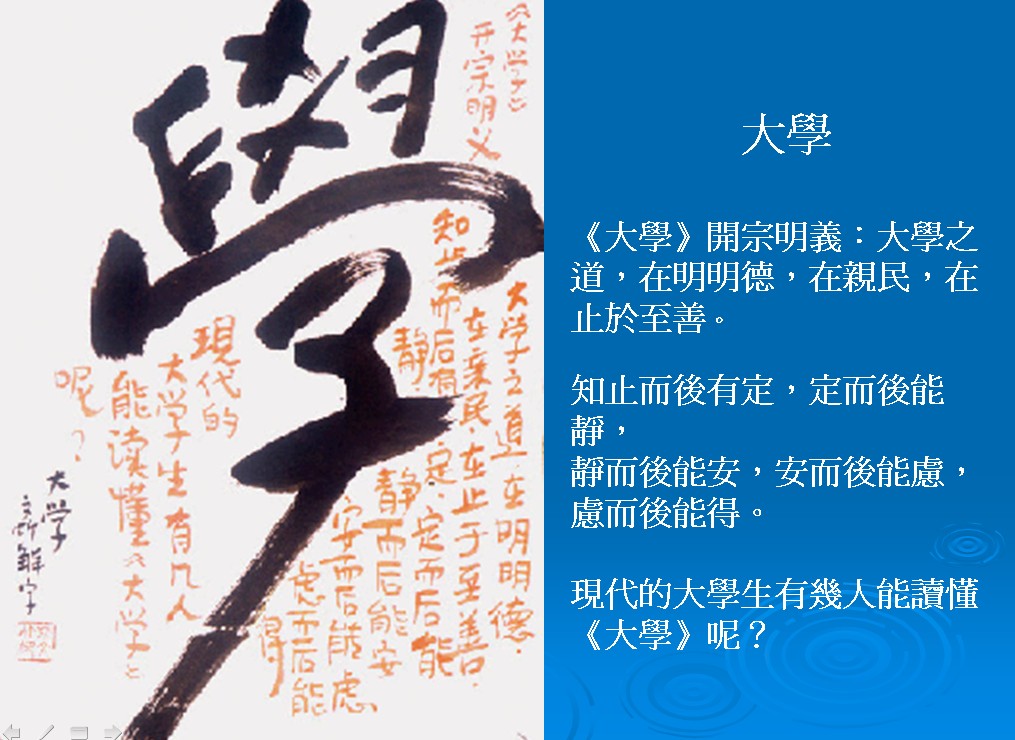 學
《大学》
开宗明义
大学之道在明明德.
在亲民.在止于至善.
知止而后有
定.定而后能
静
静而后能安
安而后能虑
虑而后能
得
現代的
大学生有几人
能读懂《大学》
呢？
大学
解字
大學
《大學》開宗明義：大學之
道，在明明德，在親民，在
止於至善。
知止而後有定，定而後能
靜，
靜而後能安，安而後能慮，
慮而後能得。
現代的大學生有幾人能讀懂
《大學》呢？